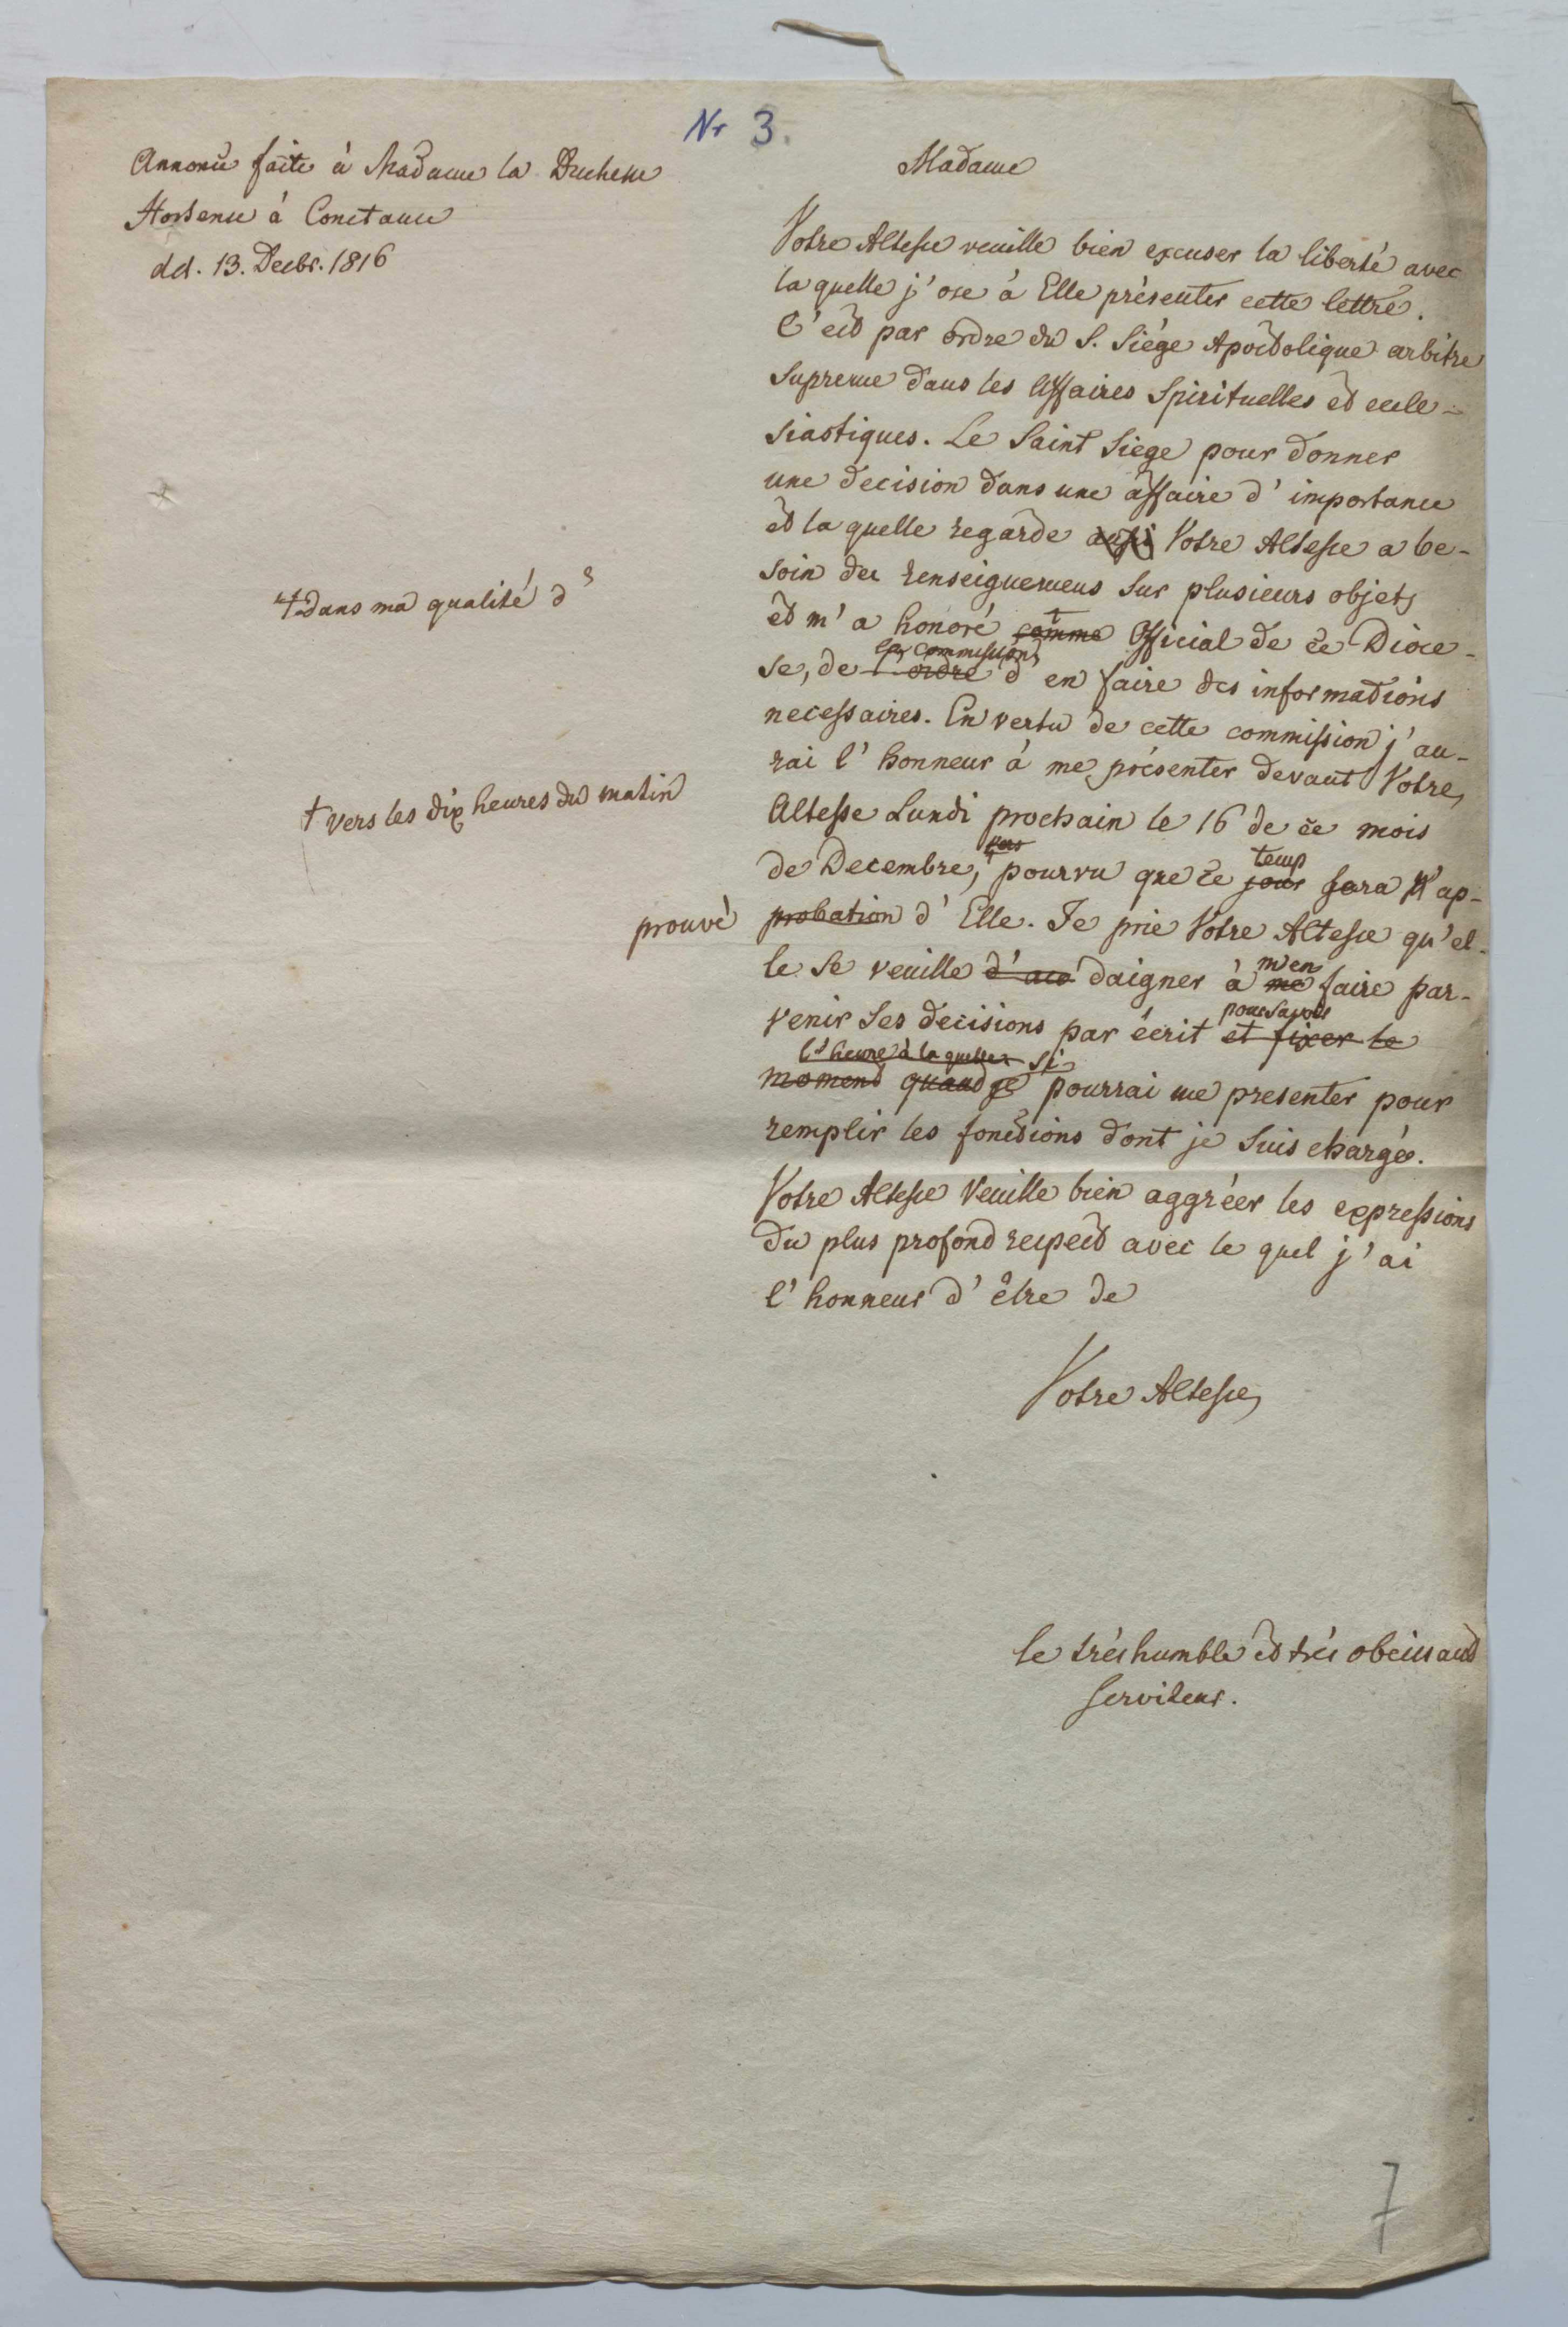 Nr 3.
Annonce faite à Madame la Duchesse
Hortense à Constance
dd. 13. Decbr. 1816
Madame
Votre Altesse veuille bien excuser la liberté avec
la quelle j'ose à Elle présenter cette lettre.
C'est par ordre du S. Siége Apostolique arbitre
Supreme dans les Affaires Spirituelles et eccle-
siastiques. Le Saint Siege pour donner
une decision dans une affaire d'importance
et la quelle regarde aussi Votre Altesse a be-
soin des renseignemens sur plusieurs objets
+ dans ma qualité d'
et m'a honoré comme + Official de ce Dioce-
la commission
se, de l'ordre d'en faire des informations
necessaires. En vertu de cette commission j'au-
rai l'honneur à me présenter devant Votre
+ vers les dix heures du matin
Altesse Lundi prochain le 16 de ce mois
vers temp
de Decembre, + pourvu que ce jour sera l'ap-
prouvé probation d'Elle. Je prie Votre Altesse qu'el-
m'en
le se veuille d'acc daigner à me faire par-
pour savoir
venir Ses decisions par écrit et fixer le
l'heure à la quelle si
moment quand je pourrai me presenter pour
remplir les fonctions dont je suis chargée.
Votre Altesse Veuille bien aggréer les expressions
du plus profond respect avec le quel j'ai
l'honneur d'être de
Votre Altesse
le très humble et très obeissant
serviteur.
7